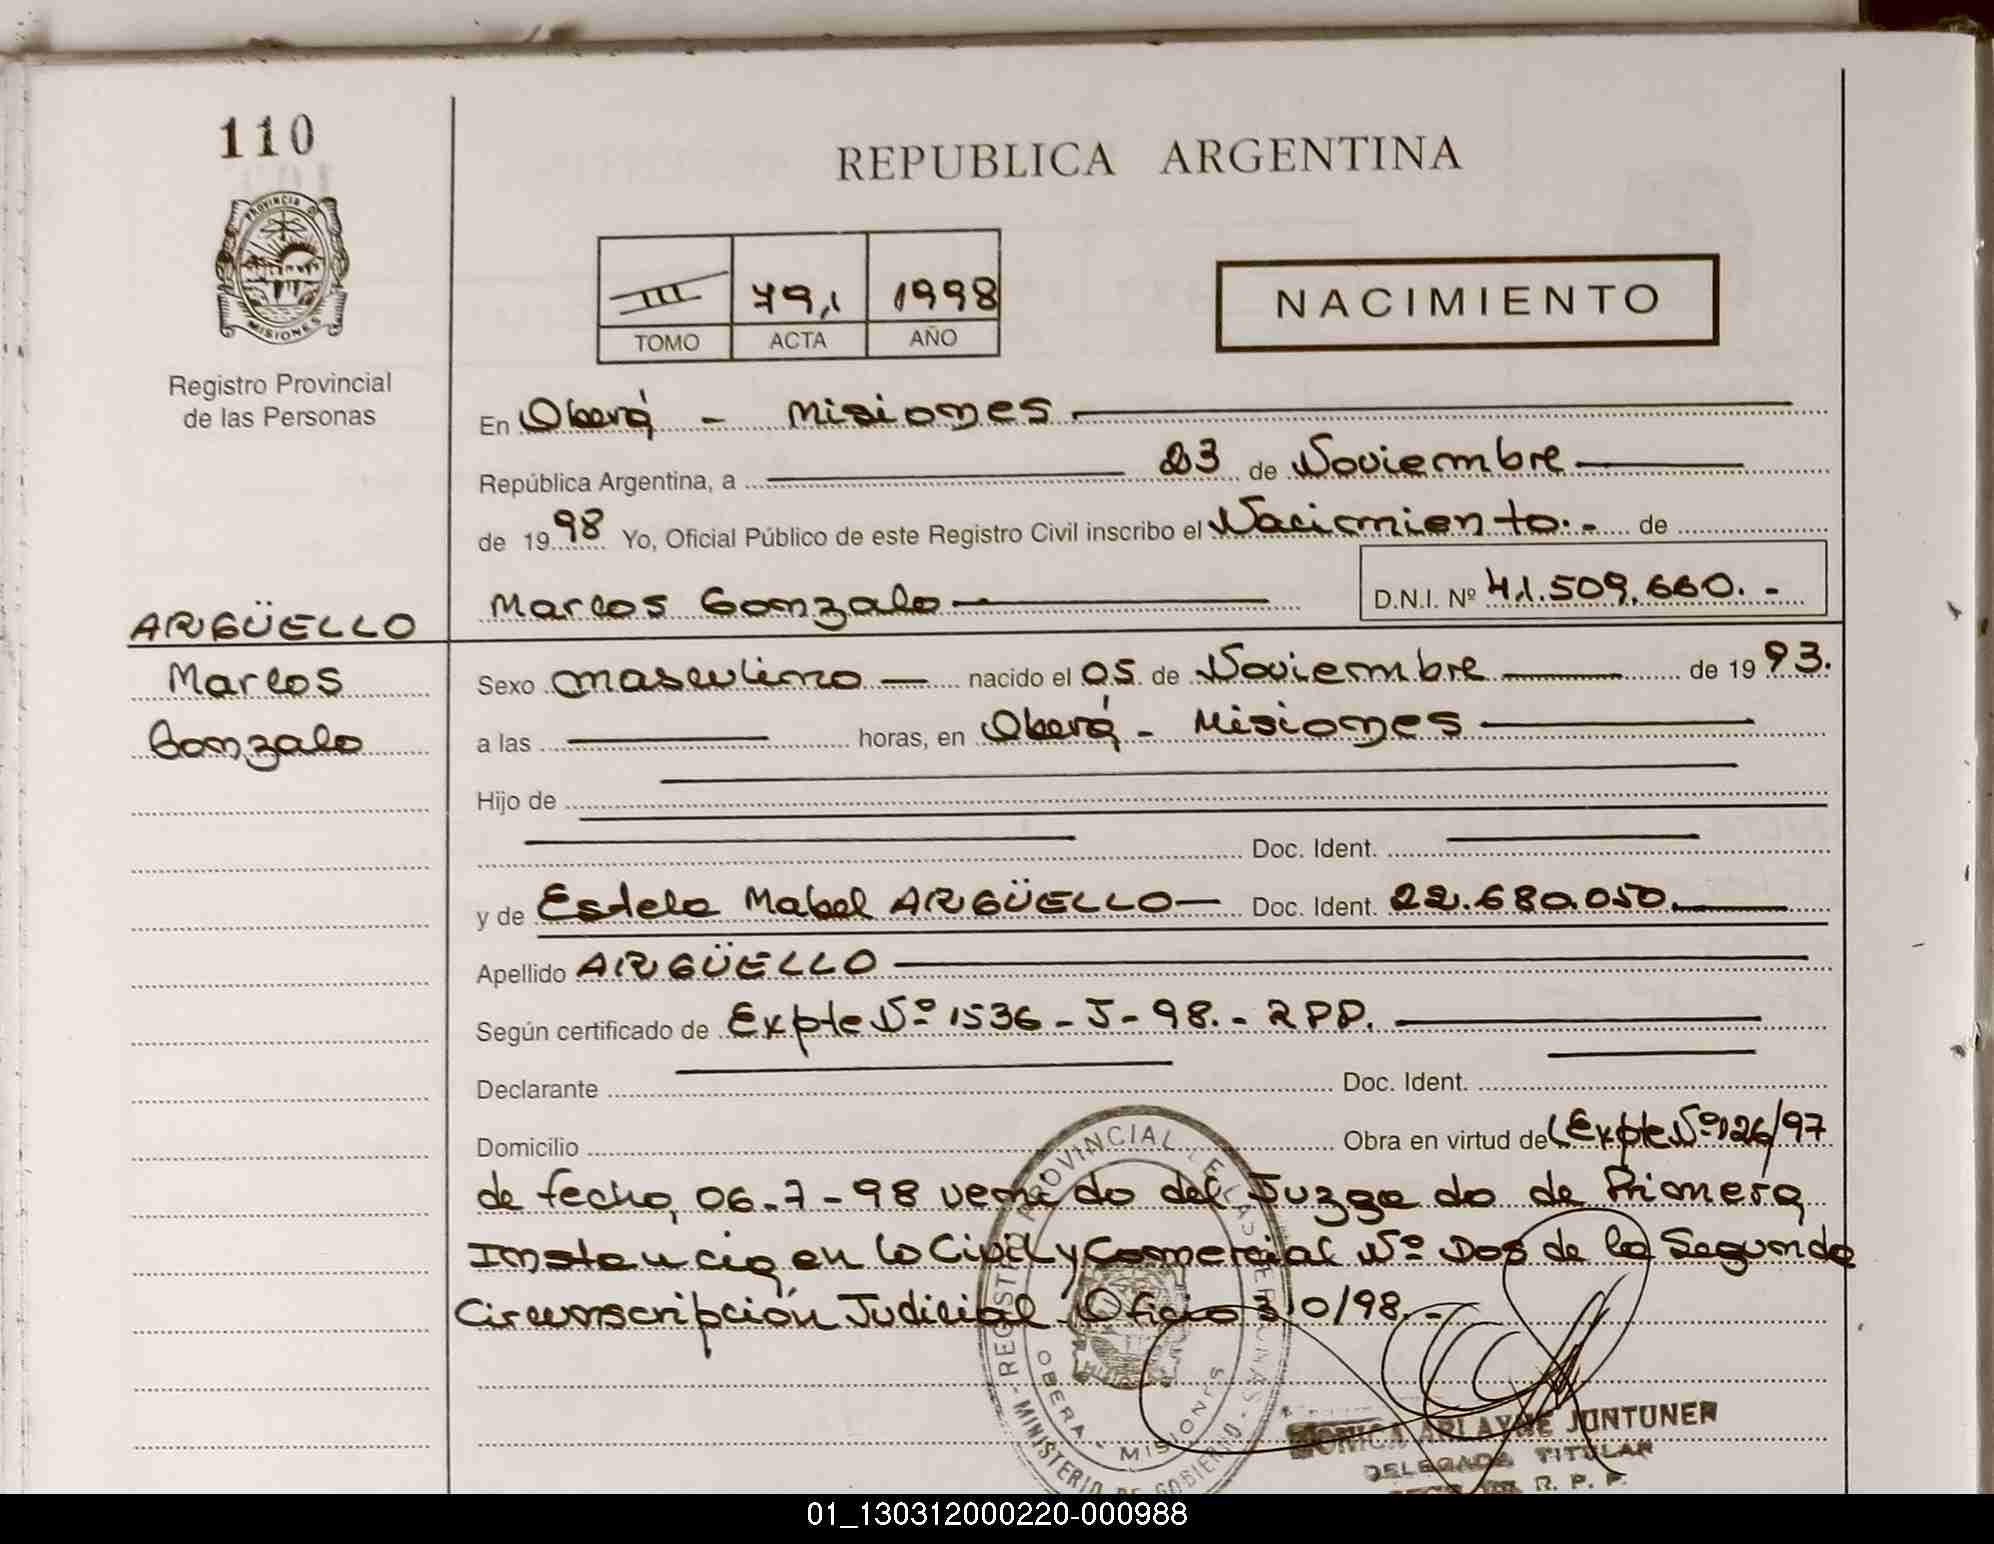 110
REPUBLICA ARGENTINA
PROVINCIA D
MISIONES
Registro Provincial
de las Personas
III 79,1 1998
TOMO ACTA AÑO
NACIMIENTO
En Oberá - Misiones
República Argentina, a 23 de Noviembre
de 1998 Yo, Oficial Público de este Registro Civil inscribo el Nacimiento.- de
Marcos Gonzalo D.N.I. Nº 41.509.660.-
ARGÜELLO
Marcos
Gonzalo
Sexo masculino nacido el 05 de Noviembre de 1993.
a las horas, en Oberá - Misiones
Hijo de
Doc. Ident.
y de Estela Mabel ARGÜELLO Doc. Ident. 22.680.050.
Apellido ARGÜELLO
Según certificado de Expte Nº 1536-J-98.- RPP.
Declarante Doc. Ident.
Domicilio Obra en virtud del Expte Nº 126/97
de fecha, 06-7-98 venido del Juzgado de Primera
Instancia en lo Civil y Comercial Nº Dos de la Segunda
Circunscripción Judicial. Oficio 310/98.-
REGISTRO PROVINCIAL DE LAS PERSONAS - MINISTERIO DE GOBIERNO -
OBERA - MISIONES
MONICA ARLAYNE JUNTUNEN
DELEGADA TITULAR
R. P. P.
01_130312000220-000988